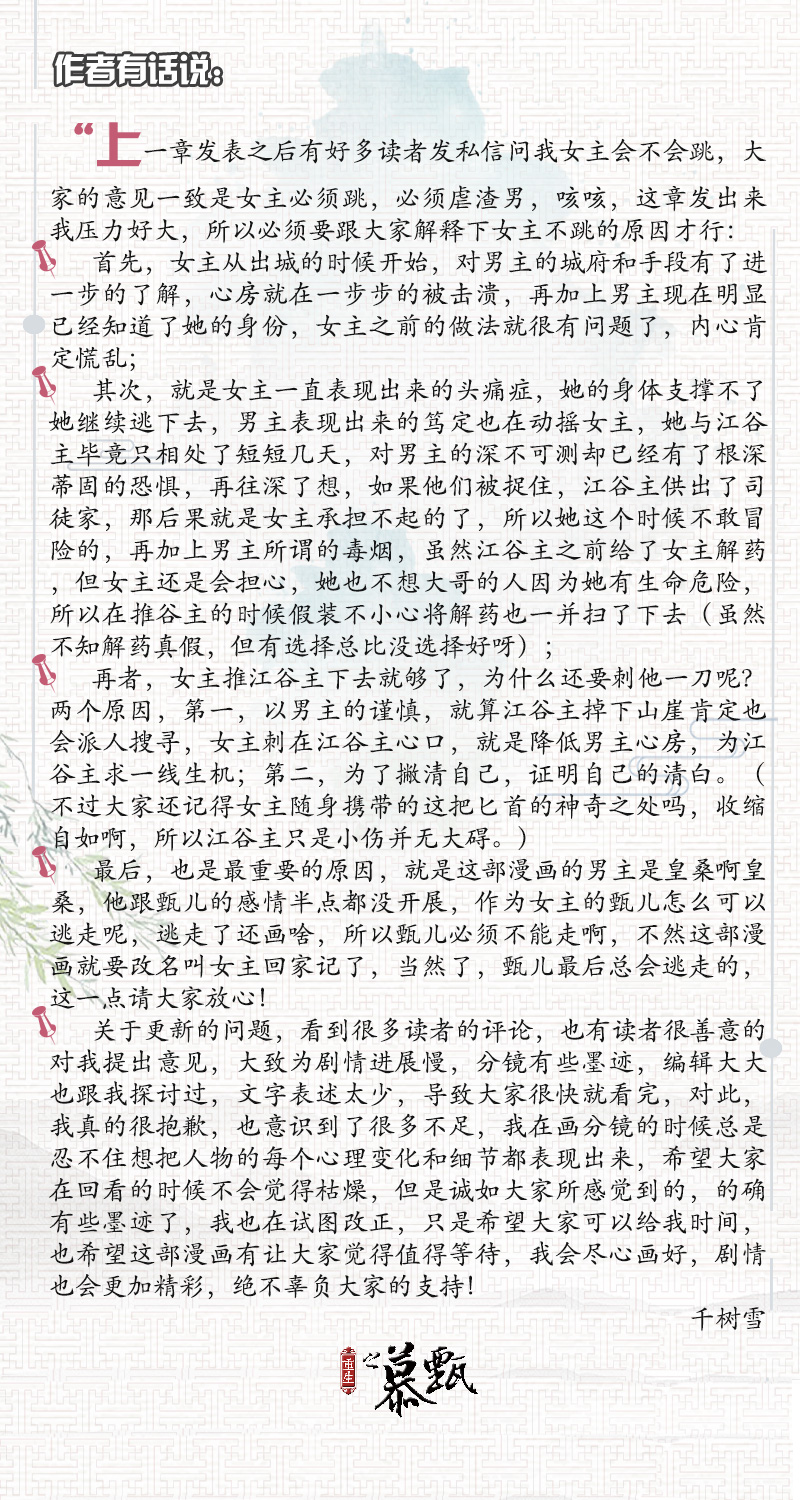 作者有话说：
“上一章发表之后有好多读者发私信问我女主会不会跳，大
家的意见一致是女主必须跳，必须虐渣男，咳咳，这章发出来
我压力好大，所以必须要跟大家解释下女主不跳的原因才行：
首先，女主从出城的时候开始，对男主的城府和手段有了进
一步的了解，心房就在一步步的被击溃，再加上男主现在明显
已经知道了她的身份，女主之前的做法就很有问题了，内心肯
定慌乱；
其次，就是女主一直表现出来的头痛症，她的身体支撑不了
她继续逃下去，男主表现出来的笃定也在动摇女主，她与江谷
主毕竟只相处了短短几天，对男主的深不可测却已经有了根深
蒂固的恐惧，再往深了想，如果他们被捉住，江谷主供出了司
徒家，那后果就是女主承担不起的了，所以她这个时候不敢冒
险的，再加上男主所谓的毒烟，虽然江谷主之前给了女主解药
，但女主还是会担心，她也不想大哥的人因为她有生命危险，
所以在推谷主的时候假装不小心将解药也一并扫了下去（虽然
不知解药真假，但有选择总比没选择好呀）；
再者，女主推江谷主下去就够了，为什么还要刺他一刀呢？
两个原因，第一，以男主的谨慎，就算江谷主掉下山崖肯定也
会派人搜寻，女主刺在江谷主心口，就是降低男主心房，为江
谷主求一线生机；第二，为了撇清自己，证明自己的清白。（
不过大家还记得女主随身携带的这把匕首的神奇之处吗，收缩
自如啊，所以江谷主只是小伤并无大碍。）
最后，也是最重要的原因，就是这部漫画的男主是皇桑啊皇
桑，他跟甄儿的感情半点都没开展，作为女主的甄儿怎么可以
逃走呢，逃走了还画啥，所以甄儿必须不能走啊，不然这部漫
画就要改名叫女主回家记了，当然了，甄儿最后总会逃走的，
这一点请大家放心！
关于更新的问题，看到很多读者的评论，也有读者很善意的
对我提出意见，大致为剧情进展慢，分镜有些墨迹，编辑大大
也跟我探讨过，文字表述太少，导致大家很快就看完，对此，
我真的很抱歉，也意识到了很多不足，我在画分镜的时候总是
忍不住想把人物的每个心理变化和细节都表现出来，希望大家
在回看的时候不会觉得枯燥，但是诚如大家所感觉到的，的确
有些墨迹了，我也在试图改正，只是希望大家可以给我时间，
也希望这部漫画有让大家觉得值得等待，我会尽心画好，剧情
也会更加精彩，绝不辜负大家的支持！
千树雪
重生之慕甄